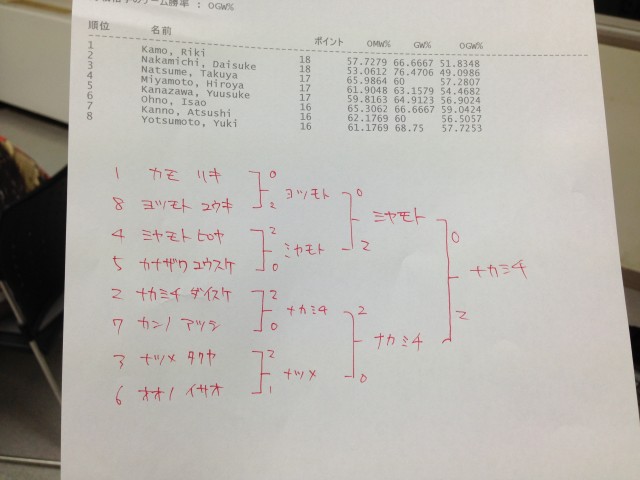 のゲーム勝率 : OGW%
順位 名前 ポイント OMW% GW% OGW%
1 Kamo, Riki 18 57.7279 66.6667 51.8348
2 Nakamichi, Daisuke 18 53.0612 76.4706 49.0986
3 Natsume, Takuya 17 65.9864 60 57.2807
4 Miyamoto, Hiroya 17 61.9048 63.1579 54.4682
5 Kanazawa, Yuusuke 17 59.8163 64.9123 56.9024
6 Ohno, Isao 16 65.3062 66.6667 59.0424
7 Kanno, Atsushi 16 62.1769 60 56.5057
8 Yotsumoto, Yuki 16 61.1769 68.75 57.7253
1 カモ リキ 0
ヨツモト 0
8 ヨツモト ユウキ 2
ミヤモト 0
4 ミヤモト ヒロヤ 2
ミヤモト 2
5 カナザワ ユウスケ 0
ナカミチ
2 ナカミチ ダイスケ 2
ナカミチ 2
7 カンノ アツシ 0
ナカミチ 2
3 ナツメ タクヤ 2
ナツメ 0
6 オオノ イサオ 1